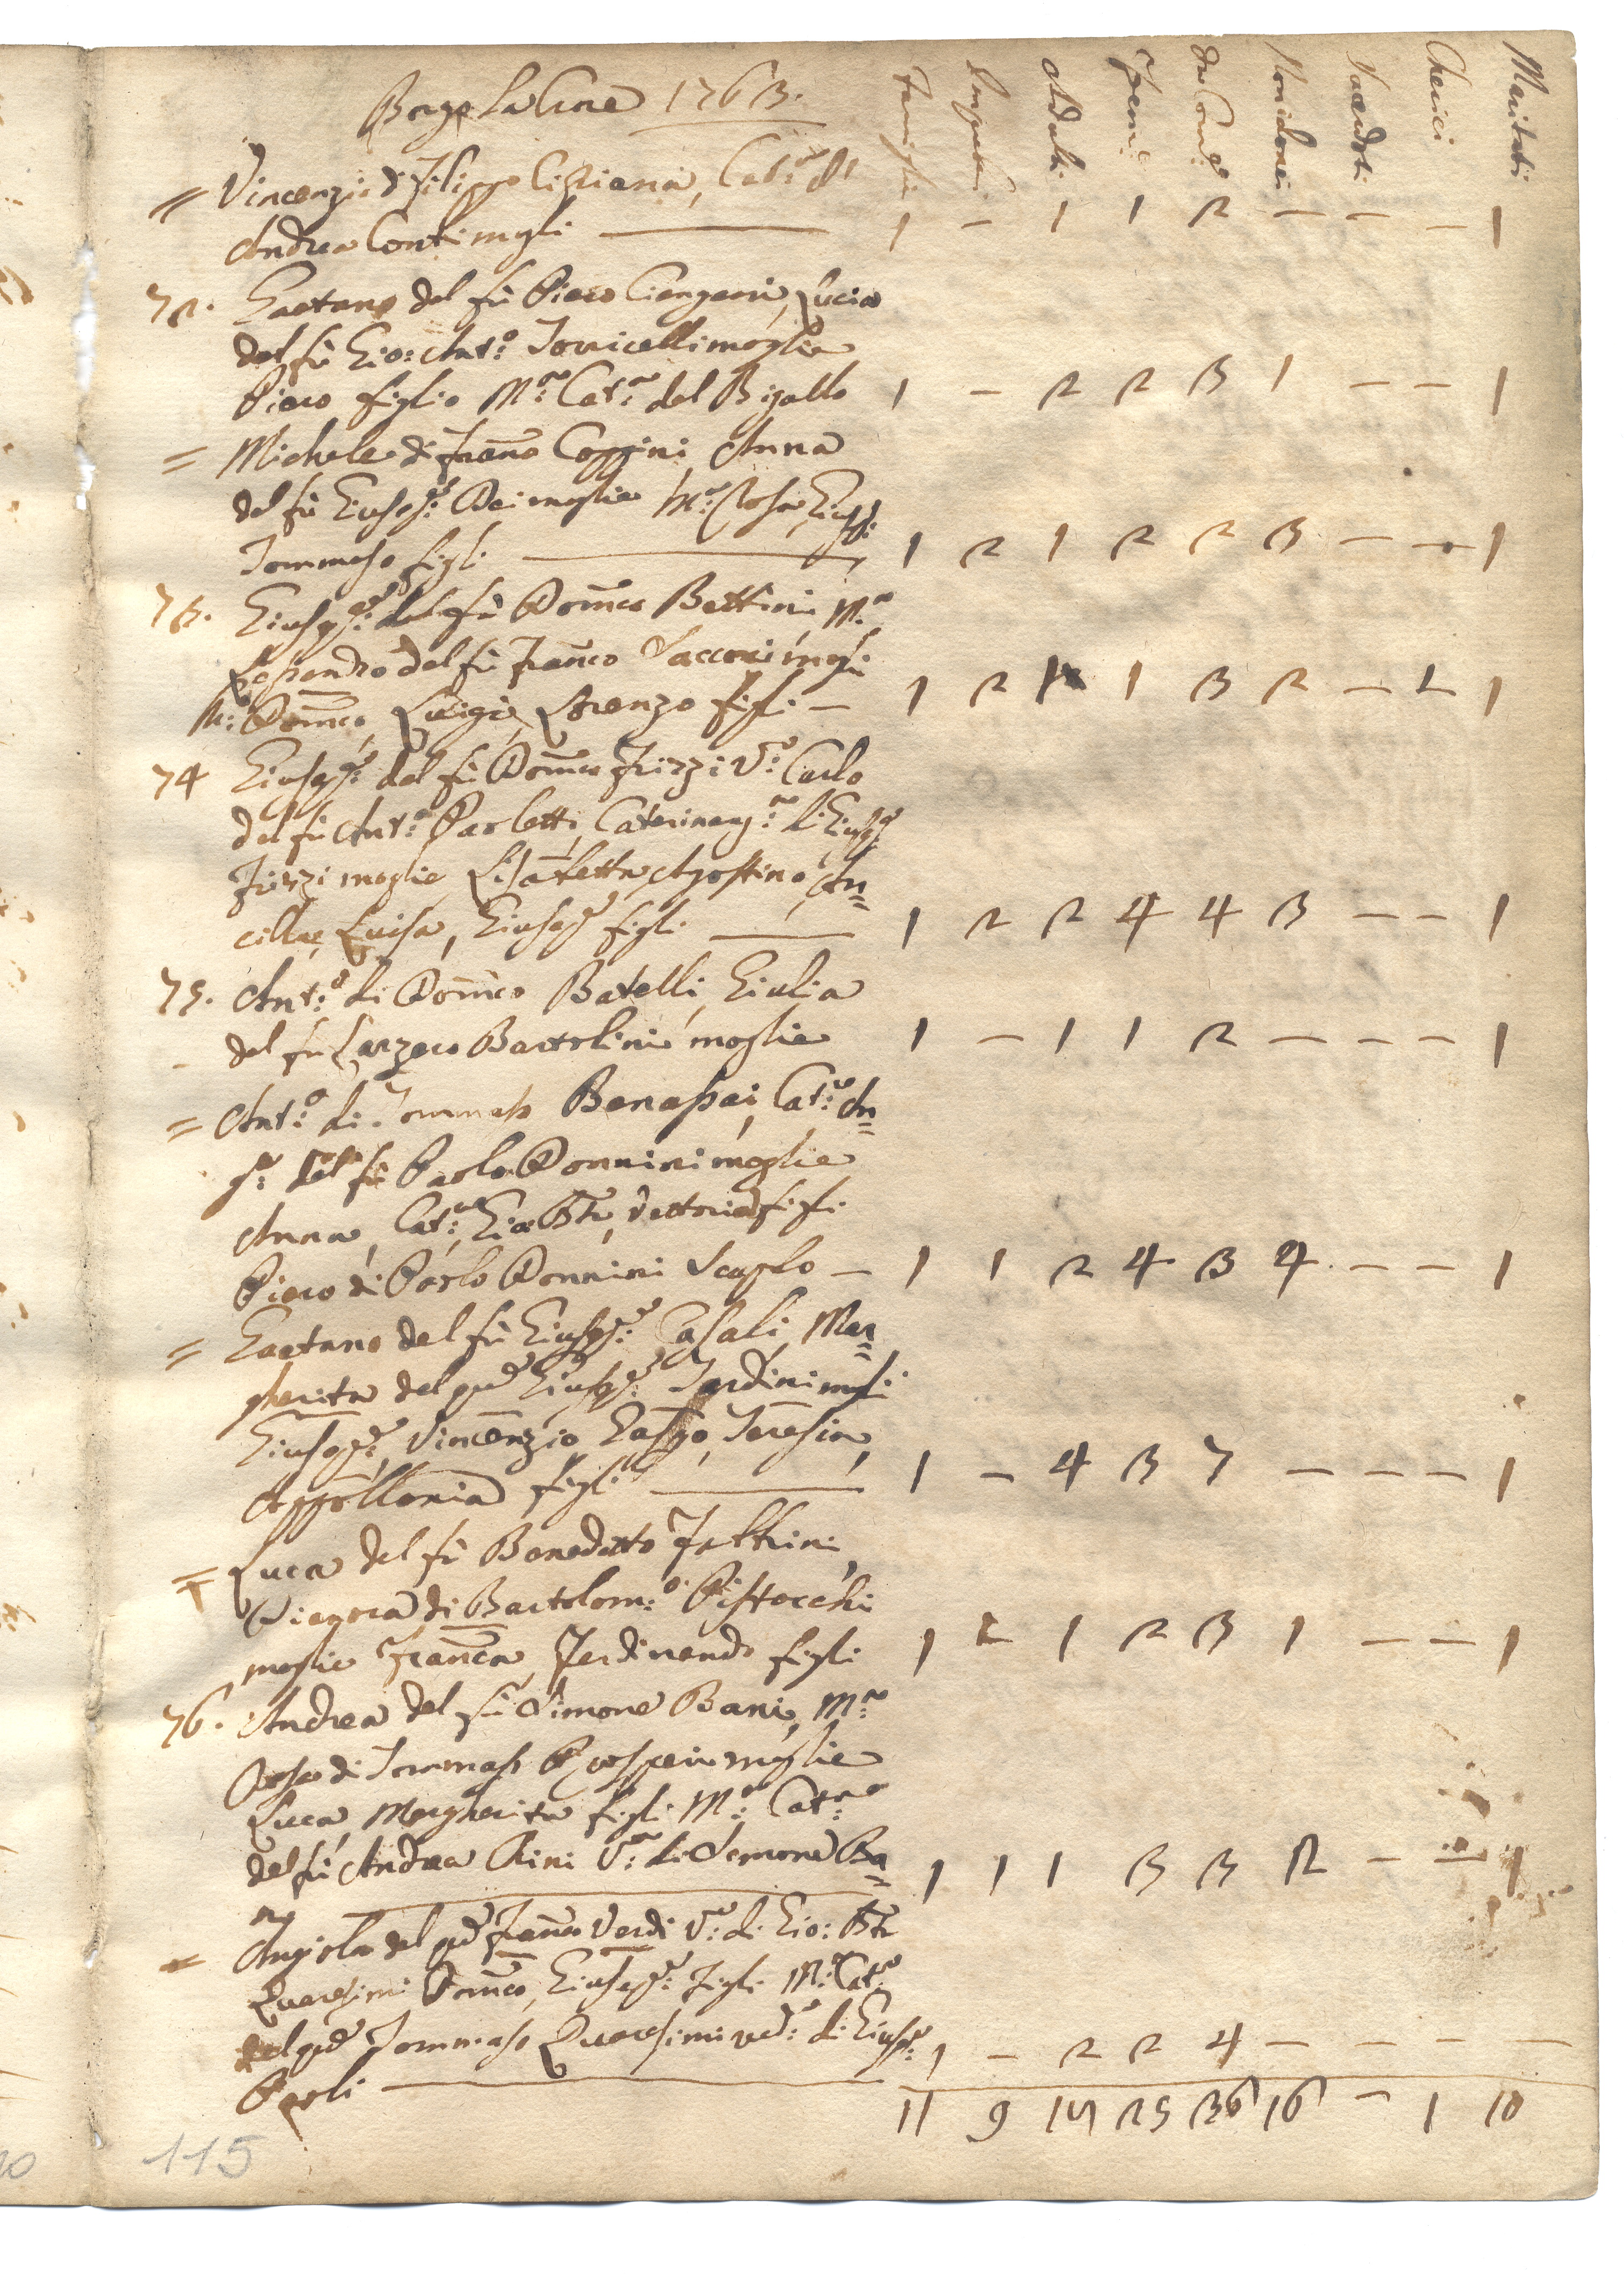 Borgo la Croce 1763.
Famiglie Impuberi Adulti Fem.e da Com.e Non idonei Sacerdoti Cherici Maritati
= Vincenzio di Filippo Cistiana, Cat.a di
Andrea Conti mogli — 1 - 1 1 2 - - - 1
72. Gaetano del fù Piero Ciangani, Lucia
del fù Gio: Ant.o Torricelli moglie
Piero figlio M.a Cat.a del Bigallo 1 - 2 2 3 1 - - 1
= Michele di Fran.o Coppini, Anna
del fù Giusep.e Dei moglie M.a Rosa, Giusp.e
Tommaso figli — 1 2 1 2 2 3 - - 1
73. Giusep.e del fù Dom.co Bettini, M.a
Lessandra del fù Fran.co Sacconi mogli
M.a Dom.co, Luigi, Lorenzo figli — 1 2 1 3 2 - 1 1
74 Giusep.e del fù Dom.co Frizzi V.o Carlo
del fù Ant.o Parletti, Caterina di Giusp.e
Frizzi moglie Lisabetta, Agostino, An=
cilla, Luisa, Giusep.e figli — 1 2 2 4 4 3 - - 1
75. Ant.o di Dom.co Batelli, Giulia
del fù Lazzero Bartolini moglie 1 - 1 1 2 - - - 1
= Ant.o di Tommaso Benassai, Cat.a An=
g.a del fù Paolo Donnini moglie
Anna, Cat.a, Gio: Bta, Vettoria figli
Piero di Paolo Donnini Scapolo — 1 1 2 4 3 4 - - 1
= Gaetano del fù Giusep.e Casali, Mar=
gherita del qd Giusep.e Tardini mogli
Giusep.e, Vincenzio, Gaspo, Teresia,
Appollonia figli — 1 - 4 3 7 - - - 1
= Luca del fù Benedetto Fattini,
Dianora di Bartolom.o Pistocchi
moglie Fran.ca, Ferdinando figli 1 1 1 2 3 1 - - 1
76. Andrea del fù Simone Bani, M.a
Rosa di Tommaso Prosperi moglie
Luca, Margherita figli M.a Cat.a
del fù Andrea Chini V.a di Simone Ba= 1 1 1 3 3 2 - - 1
ni
= Angiola del qd Fran.co Verdi V.a di Gio: Bta
Quaresimi Dom.co, Giusep.e figli M.a Cat.a
del qd Tommaso Quaresimi ved.a di Giusep.e
Paoli — 1 - 2 2 4 - - - -
11 9 14 25 36 16 - 1 10
115